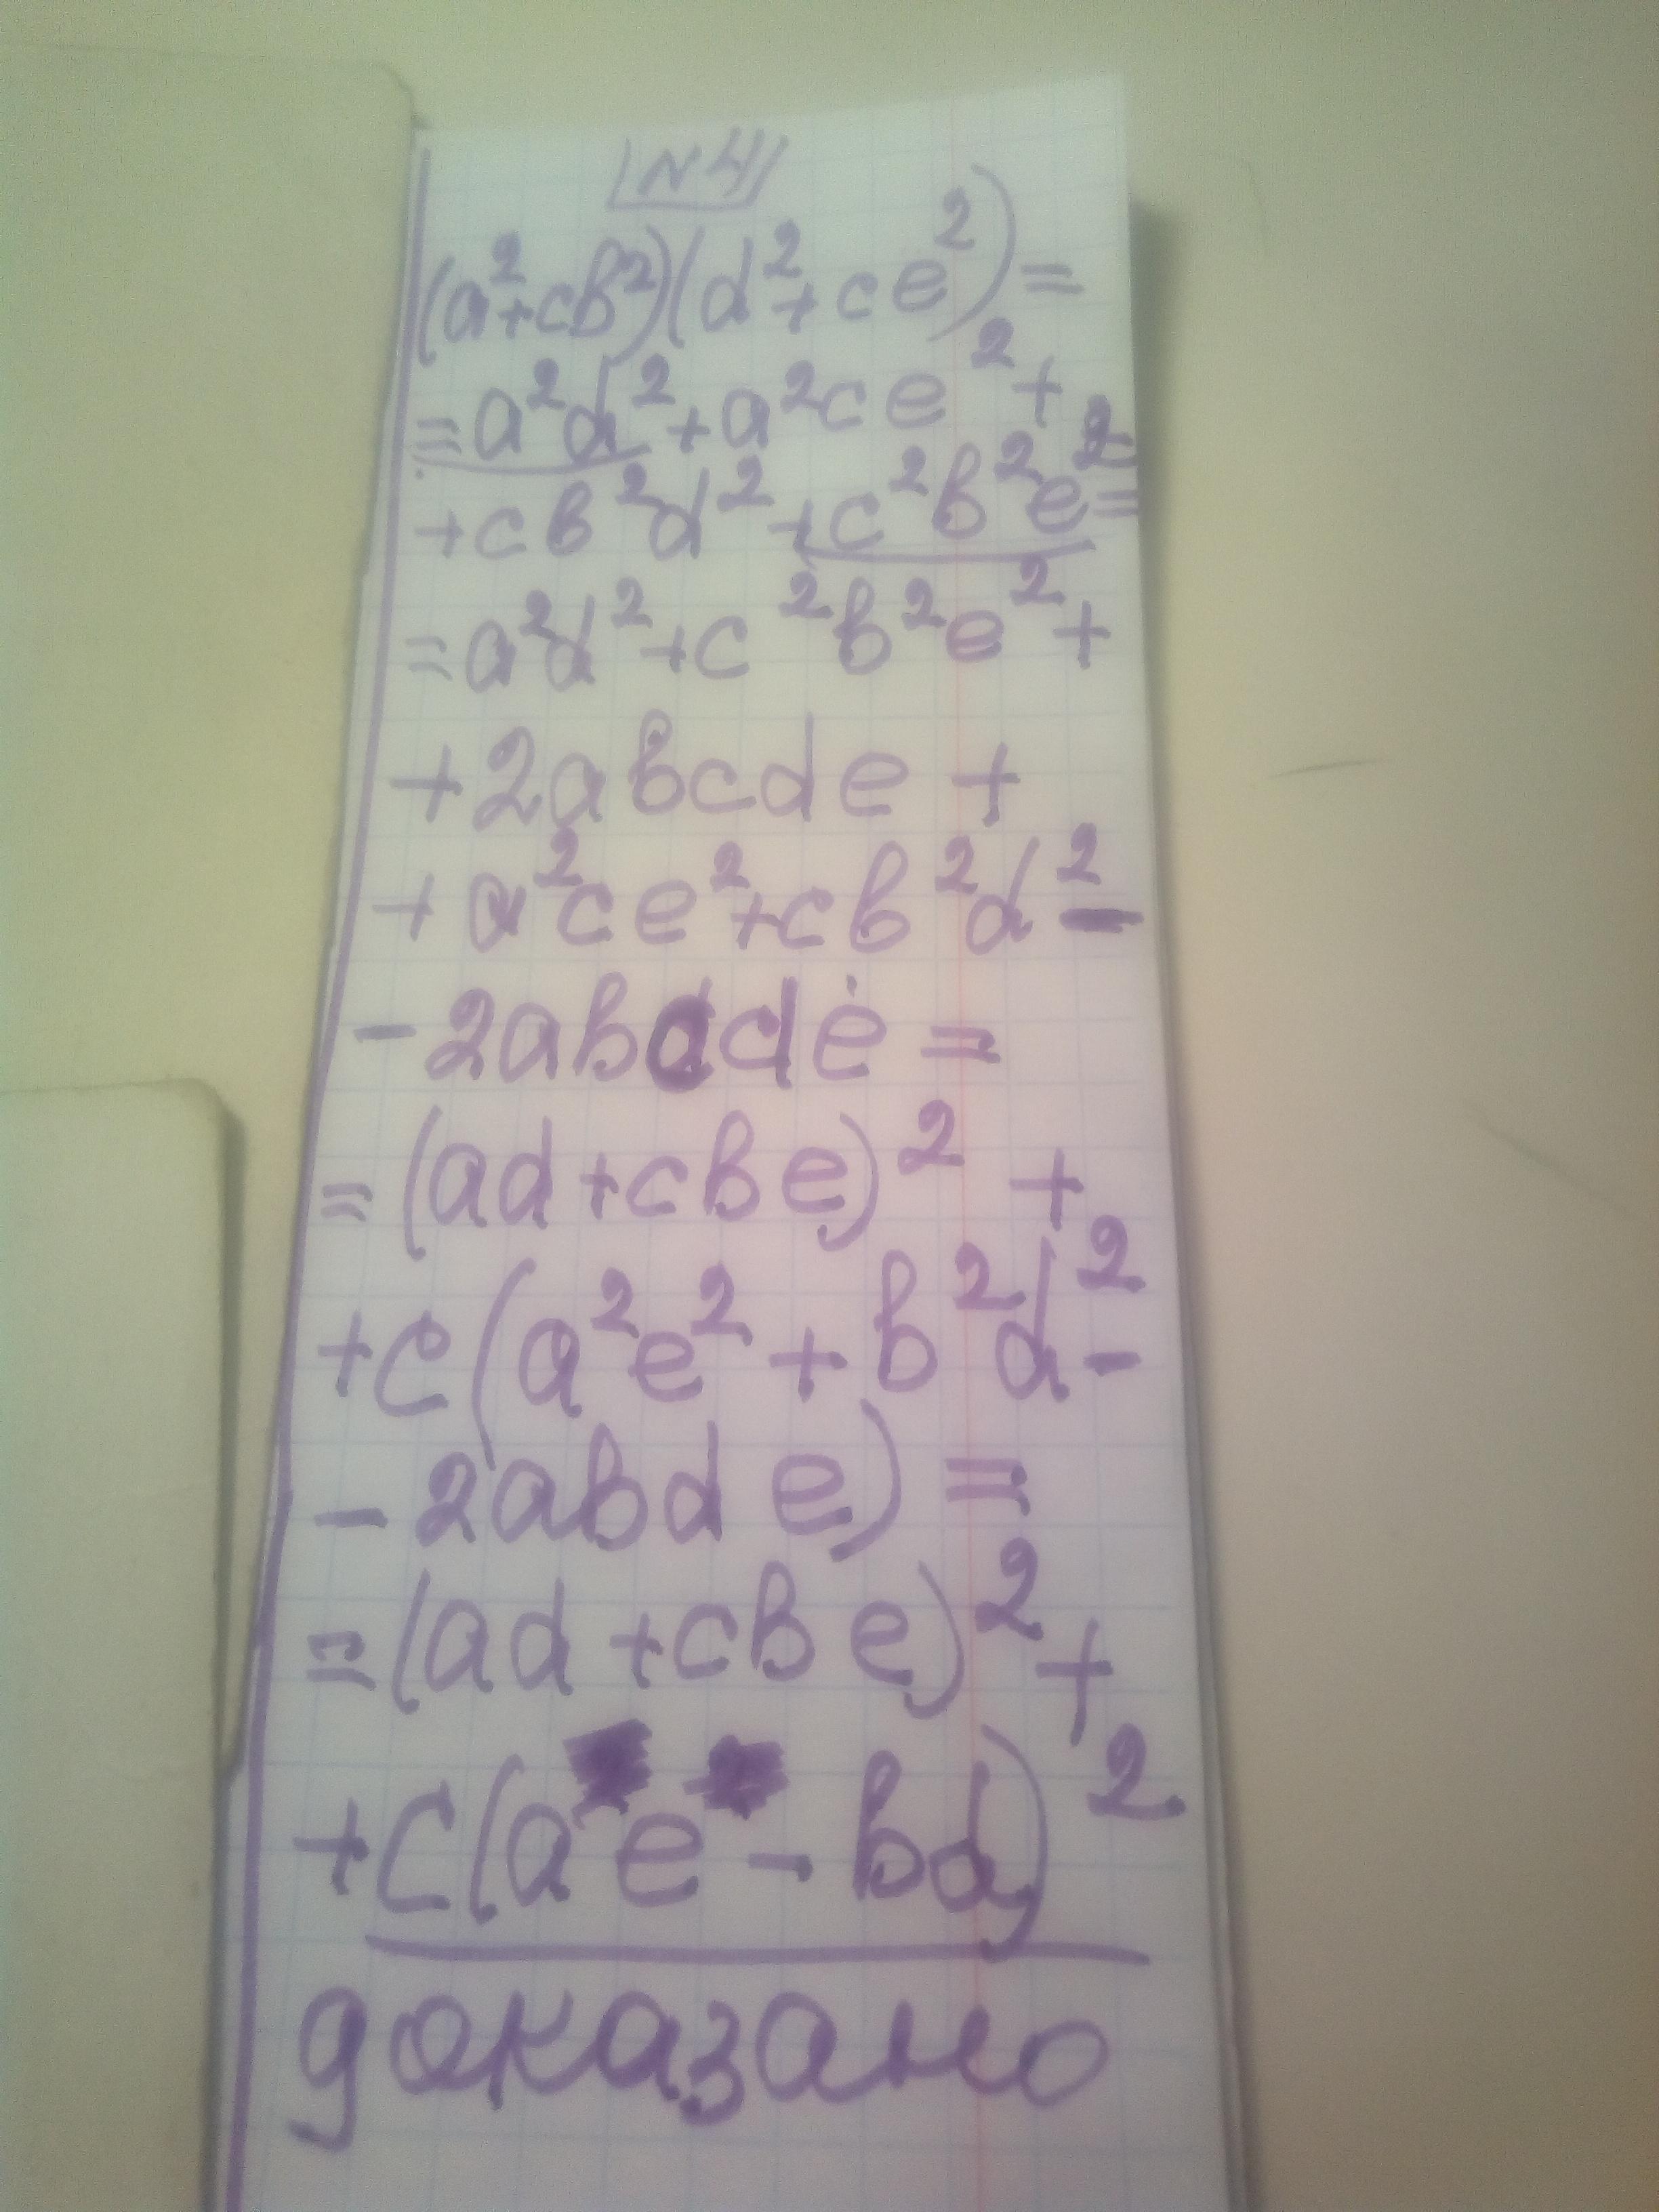 N4
(a²+cb²)(d²+ce²)=
=a²d²+a²ce²+
+cb²d²+c²b²e²=
=a²d²+c²b²e²+
+2abcde+
+a²ce²+cb²d²-
-2abcde=
=(ad+cbe)²+
+c(a²e²+b²d²-
-2abde)=
=(ad+cbe)²+
+c(ae-bd)²
доказано